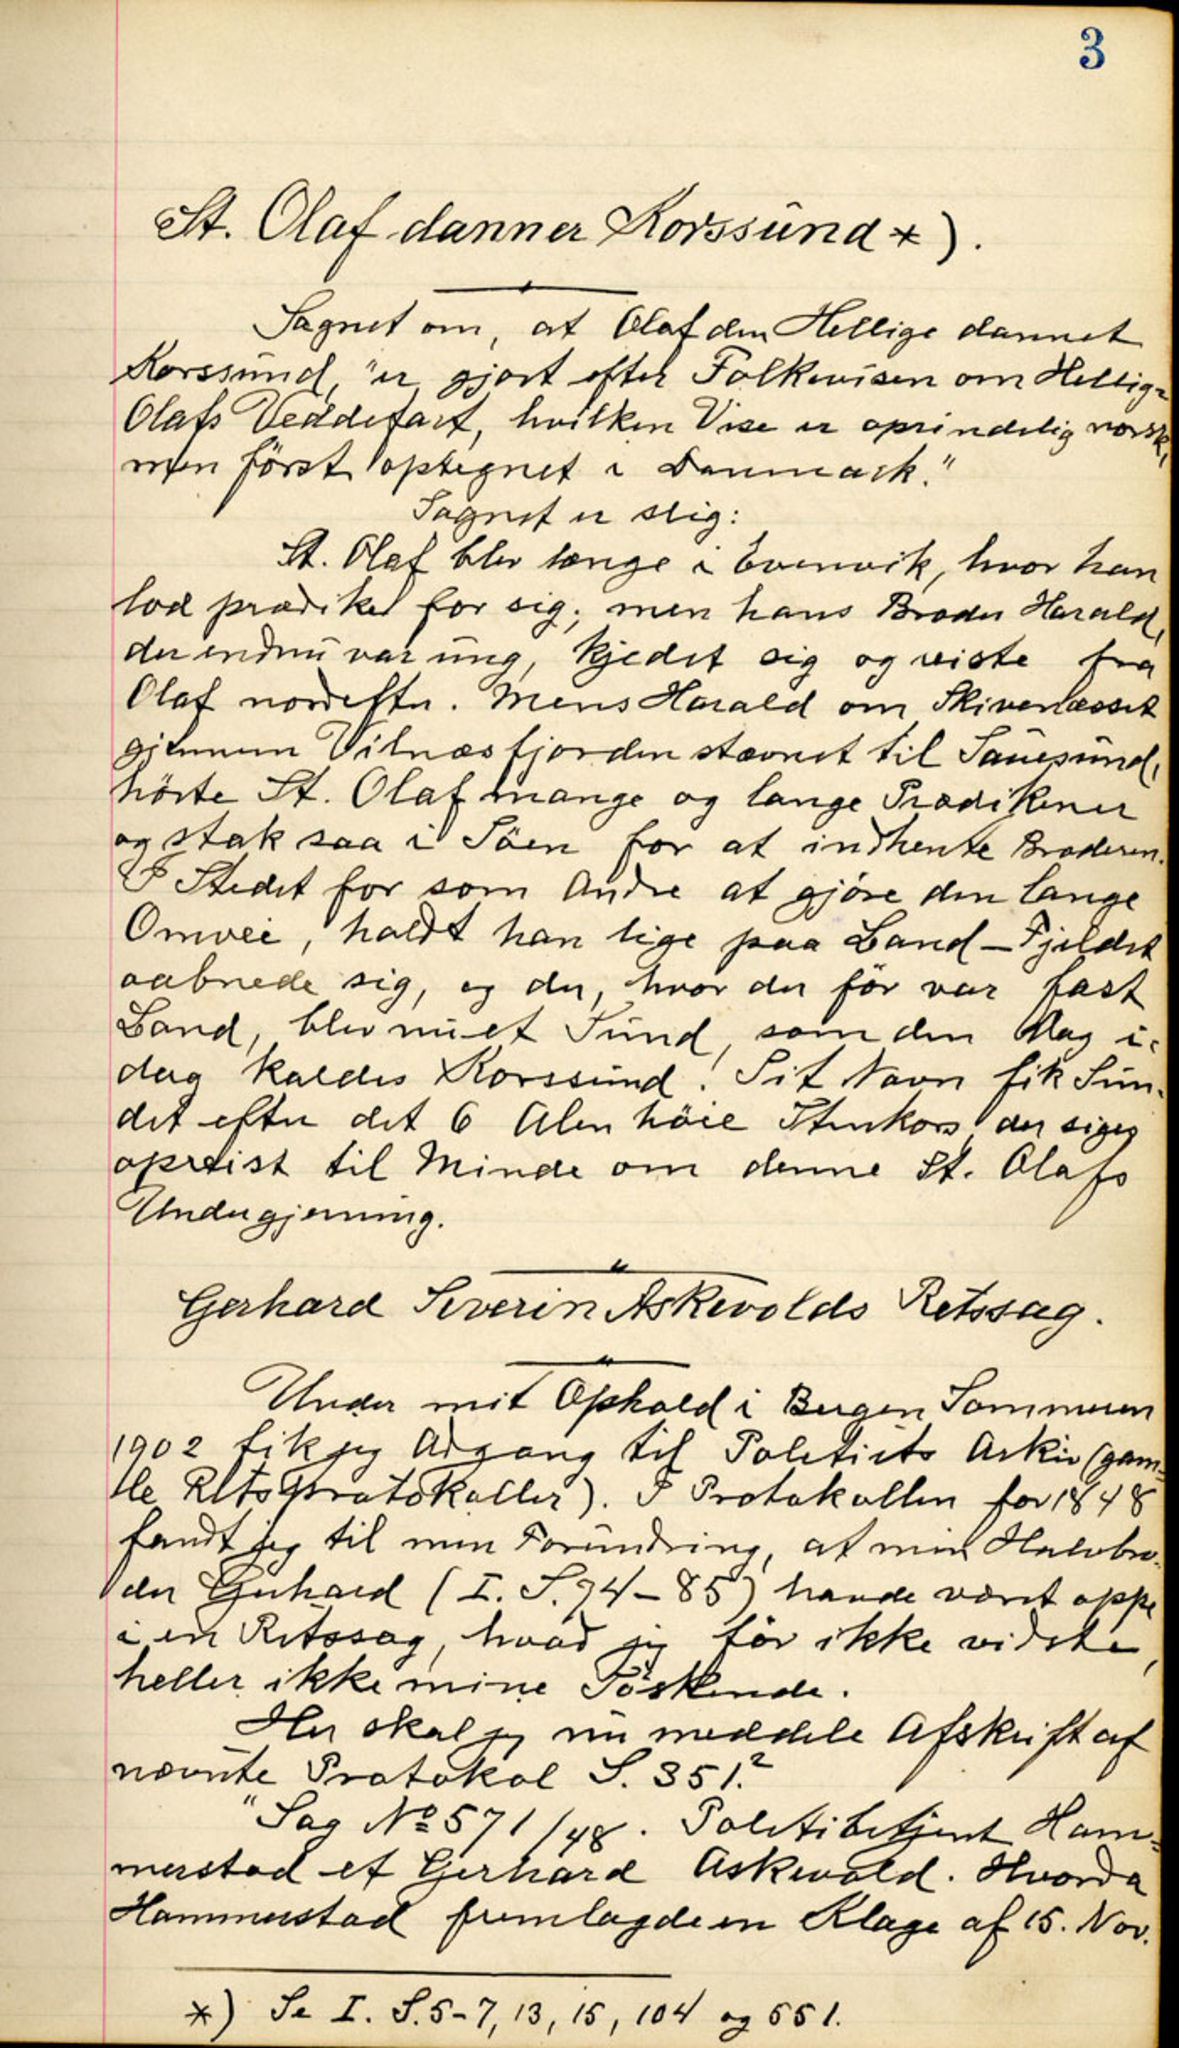 3
St. Olaf danner Korssund *).
Sagnet om, at Olaf den Hellige dannet
Korssund, "er gjort efter Folkevisen om Hellig=
Olafs Veddefart, hvilken Vise er oprindelig norsk,
men först optegnet i Danmark."
Sagnet er slig:
St. Olaf blev længe i Evenvik, hvor han
lod prædike for sig; men hans Broder Harald,
der endnu var ung, kjedet sig og reiste fra
Olaf nordefter. Mens Harald om Skivenlæsset
gjennem Vilnæsfjorden stævnet til Sauesund,
hörte St. Olaf mange og lange Prædikener
og stak saa i Söen for at indhente Broderen.
I Stedet for som Andre at gjöre den lange
Omvei, holdt han lige paa Land – Fjeldet
aabnede sig, og der, hvor der för var fast
Land, blev nu et Sund, som den Dag i-
dag kaldes Korssund. Sit Navn fik Sun-
det efter det 6 Alen höie Stenkors, der siges
opreist til Minde om denne St. Olafs
Undergjerning.
Gerhard Severin Askevolds Retssag.
Under mit Ophold i Bergen Sommeren
1902 fik jeg Adgang til Politiets Arkiv (gam-
le Retsprotokoller). I Protokollen for 1848
fandt jeg til min Forundring, at min Halvbro-
der Gerhard (I. S. 74-85) havde været oppe
i en Retssag, hvad jeg för ikke vidste,
heller ikke mine Söskende.
Her skal jeg nu meddele Afskrift af
nævnte Protokol S. 351.²
"Sag No 571/48. Politibetjent Ham-
merstad ct Gerhard Askevold. Hvorda
Hammerstad fremlagde en Klage af 15. Nov.
*) Se I. S. 5-7, 13, 15, 104 og 551.